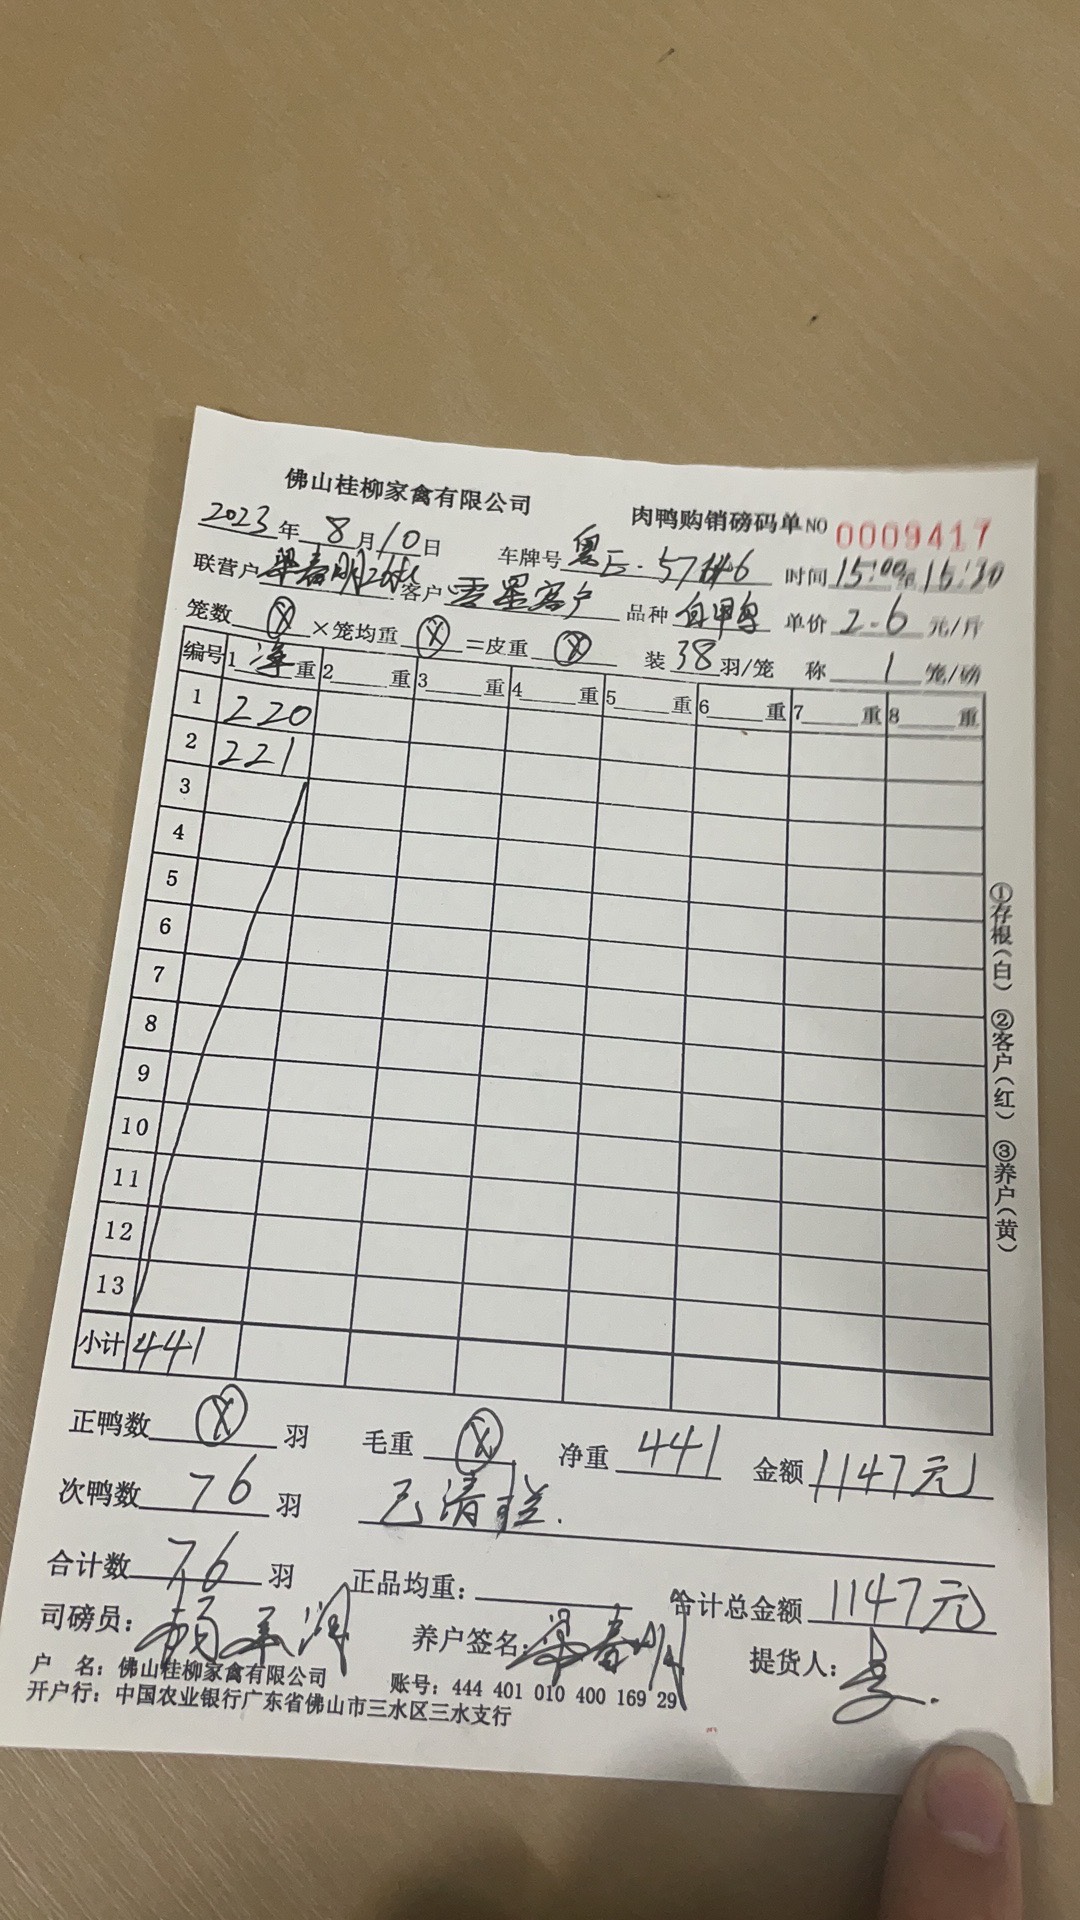 佛山桂柳家禽有限公司 肉鸭购销磅码单 NO 0009417
2023年8月10日 车牌号 粤E·57 6 时间 15:00至15:30
联营户 梁春明26批 客户 零星客户 品种 白鸭 单价 2.6 元/斤
笼数 ⓧ ×笼均重 ⓧ =皮重 ⓧ 装 38 羽/笼 称 1 笼/磅
编号 1 净 重 2 重 3 重 4 重 5 重 6 重 7 重 8 重
1 220
2 221
3
4
5
6
7
8
9
10
11
12
13
小计 441
正鸭数 ⓧ 羽 毛重 ⓧ 净重 441 金额 1147元
次鸭数 76 羽 已清栏.
合计数 76 羽 正品均重: 合计总金额 1147元
司磅员: 养户签名: 梁春明 提货人:
户 名: 佛山桂柳家禽有限公司 账号: 444 401 010 400 169 29
开户行: 中国农业银行广东省佛山市三水区三水支行
①存根(白) ②客户(红) ③养户(黄)